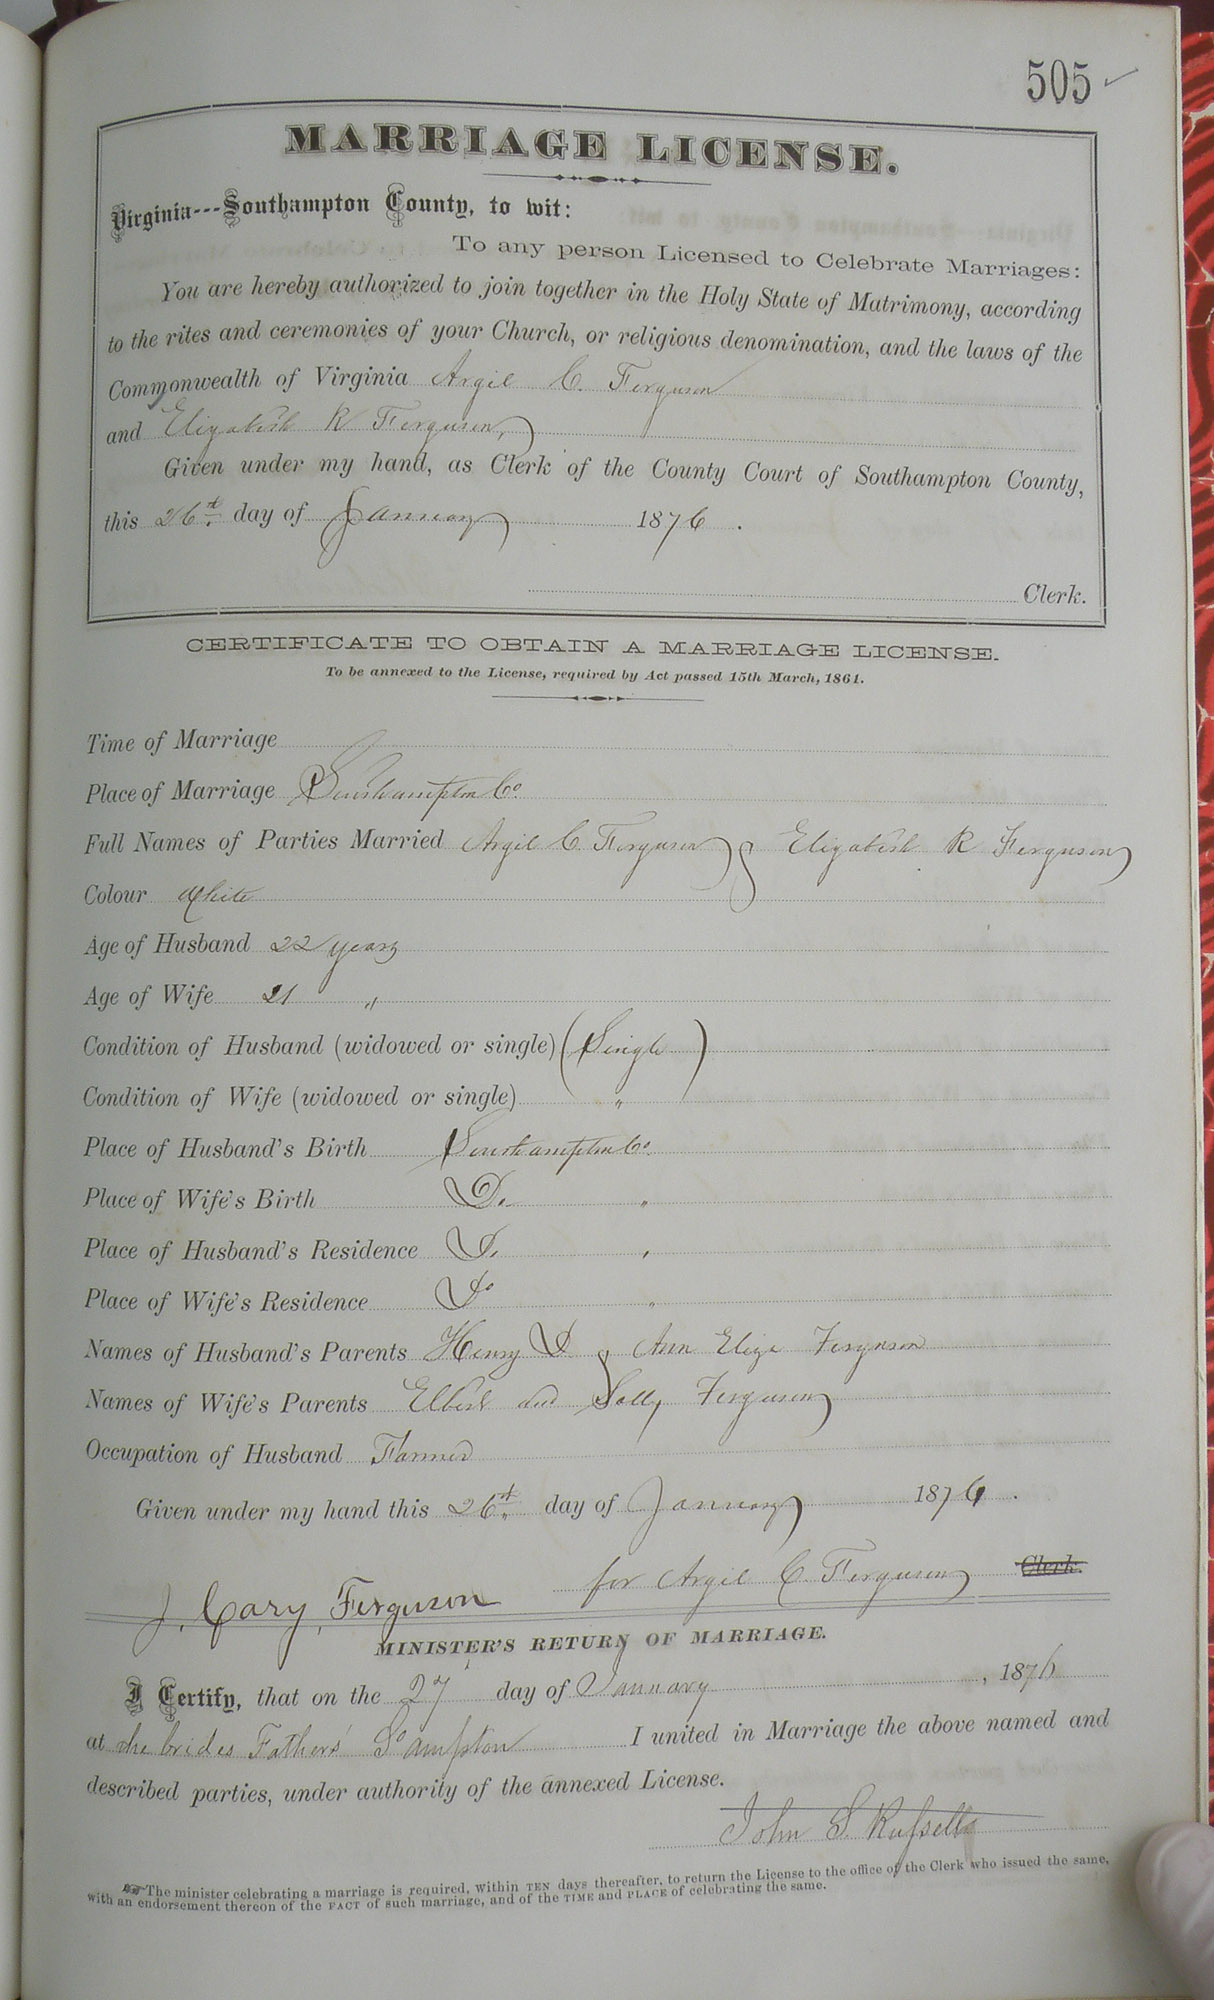 505
MARRIAGE LICENSE.
Virginia---Southampton County, to wit:
To any person Licensed to Celebrate Marriages:
You are hereby authorized to join together in the Holy State of Matrimony, according
to the rites and ceremonies of your Church, or religious denomination, and the laws of the
Commonwealth of Virginia Argil C. Ferguson
and Elizabeth R Ferguson,
Given under my hand, as Clerk of the County Court of Southampton County,
this 26th day of January 1876.
Clerk.
CERTIFICATE TO OBTAIN A MARRIAGE LICENSE.
To be annexed to the License, required by Act passed 15th March, 1861.
Time of Marriage
Place of Marriage Southampton Co
Full Names of Parties Married Argil C. Ferguson & Elizabeth R Ferguson
Colour White
Age of Husband 22 years
Age of Wife 21 "
Condition of Husband (widowed or single) (Single)
Condition of Wife (widowed or single) "
Place of Husband's Birth Southampton Co.
Place of Wife's Birth Do "
Place of Husband's Residence Do "
Place of Wife's Residence Do "
Names of Husband's Parents Henry D. & Ann Eliza Ferguson
Names of Wife's Parents Elbert and Sally Ferguson
Occupation of Husband Farmer
Given under my hand this 26th day of January 1876.
for Argil C Ferguson Clerk.
J. Cary Ferguson
MINISTER'S RETURN OF MARRIAGE.
I Certify, that on the 27 day of January, 1876
at the brides Fathers' Sohampton I united in Marriage the above named and
described parties, under authority of the annexed License.
John S. Russell
The minister celebrating a marriage is required, within TEN days thereafter, to return the License to the office of the Clerk who issued the same,
with an endorsement thereon of the FACT of such marriage, and of the TIME and PLACE of celebrating the same.